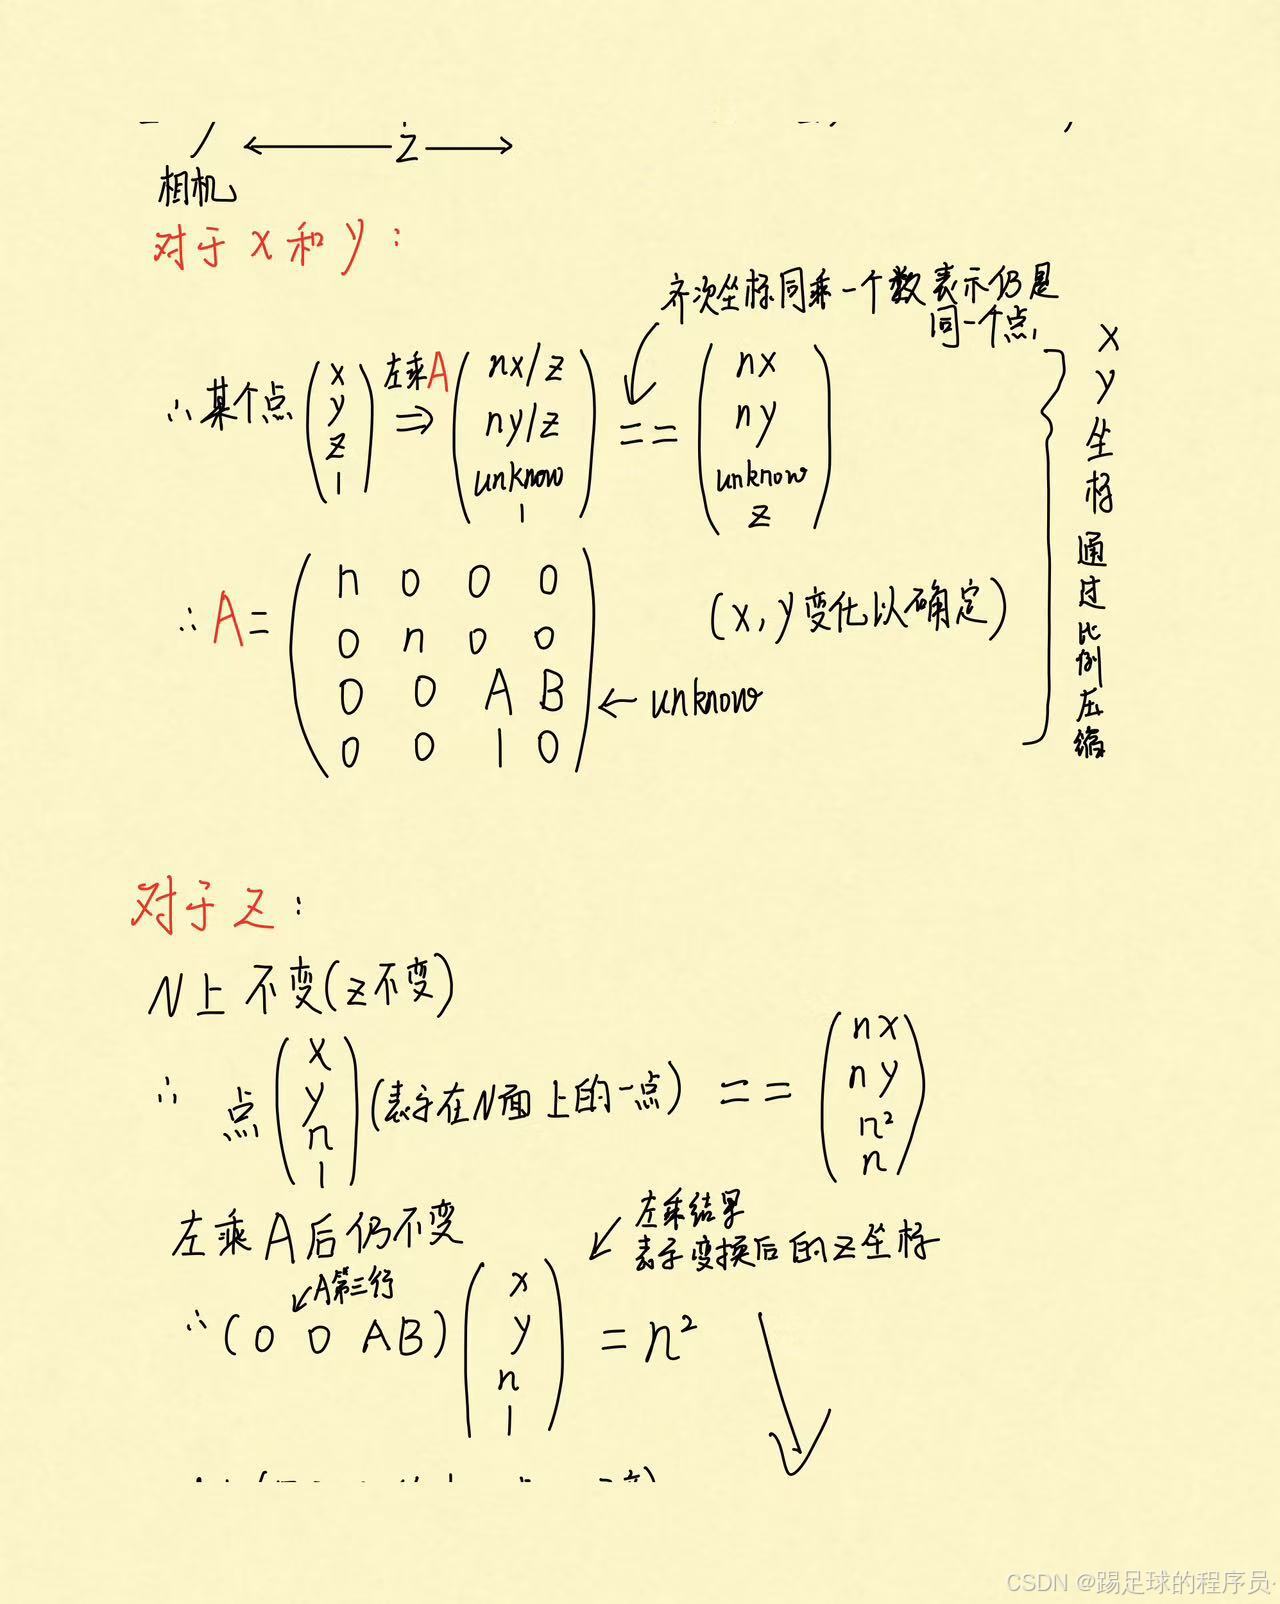 z
相机
对于 x 和 y :
齐次坐标同乘一个数表示仍是
同一个点
∴ 某个点 (x y z 1) 左乘A ⇒ (nx/z ny/z unknow 1) == (nx ny unknow z)
x y 坐标通过比例压缩
∴ A =
n 0 0 0
0 n 0 0
0 0 A B ← unknow
0 0 1 0
(x, y 变化以确定)
对于 z :
N上 不变(z不变)
∴ 点 (x y n 1) (表示在N面上的一点) == (nx ny n² n)
左乘 A 后仍不变
左乘结果
表示变换后的z坐标
A第三行
∴ (0 0 A B) (x y n 1) = n²
CSDN @踢足球的程序员